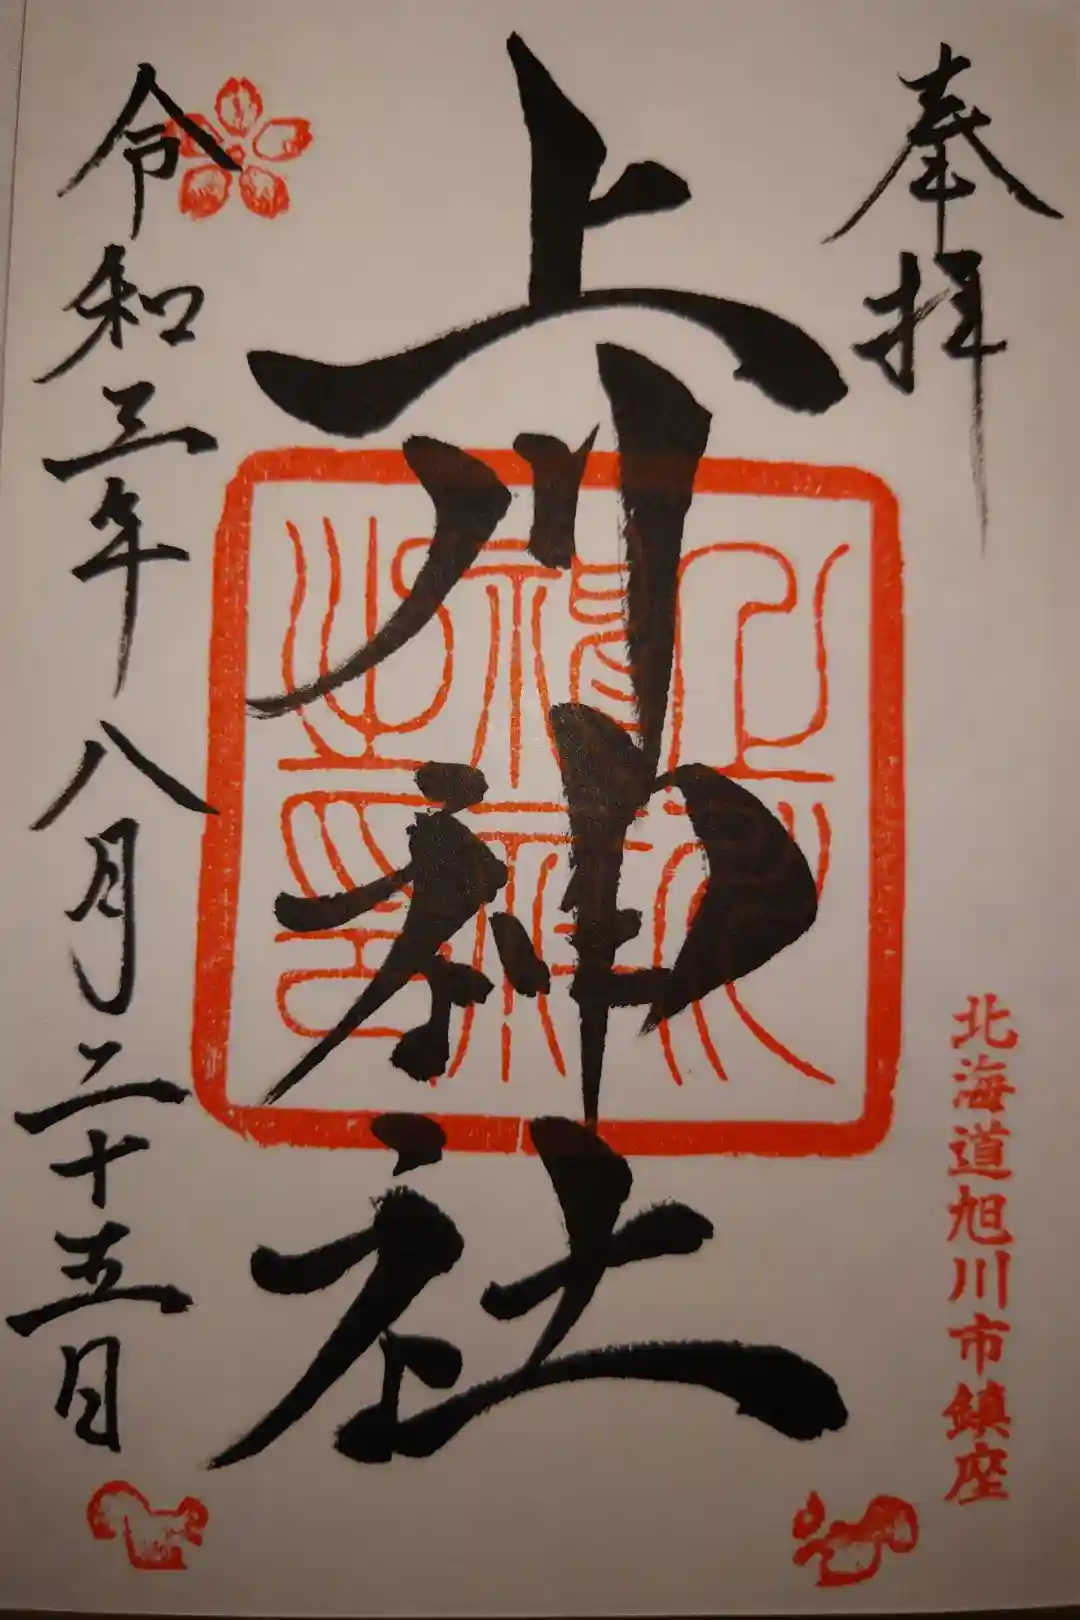 奉拝
北海道旭川市鎮座
上川神社
令和三年八月二十五日